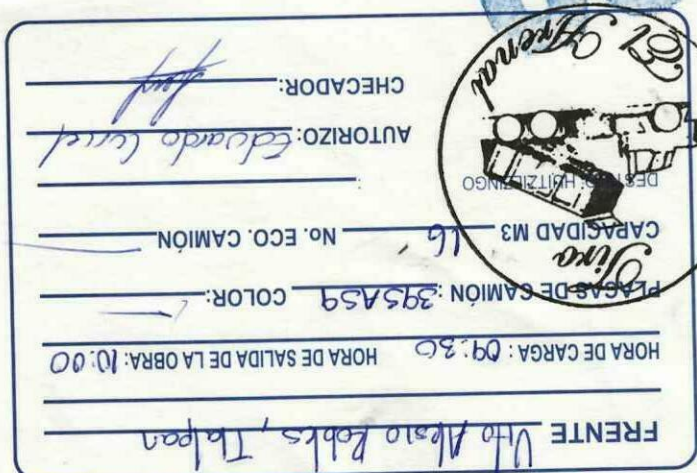 FRENTE Vito Alesio Robles, Tlalpan
HORA DE CARGA: 09:30 HORA DE SALIDA DE LA OBRA: 10:00
PLACAS DE CAMIÓN: 395AS9 COLOR:
CAPACIDAD M3 16 No. ECO. CAMIÓN
DESTINO: HUITZILZINGO
AUTORIZO: Eduardo
CHECADOR:
Tiro
El Arenal